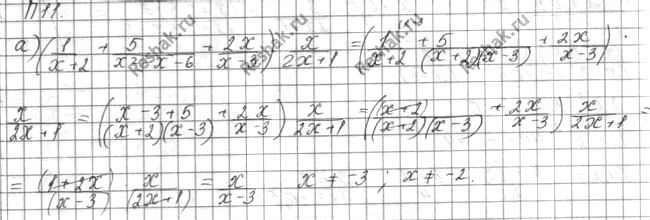 П11.
а) (1/(x+2) + 5/(x²-x-6) + 2x/(x-3)) · x/(2x+1) = (1/(x+2) + 5/((x+2)(x-3)) + 2x/(x-3)) ·
x/(2x+1) = ((x-3+5)/((x+2)(x-3)) + 2x/(x-3)) x/(2x+1) = ((x+2)/((x+2)(x-3)) + 2x/(x-3)) x/(2x+1) =
= (1+2x)/(x-3) · x/(2x+1) = x/(x-3)   x ≠ -3 ; x ≠ -2.